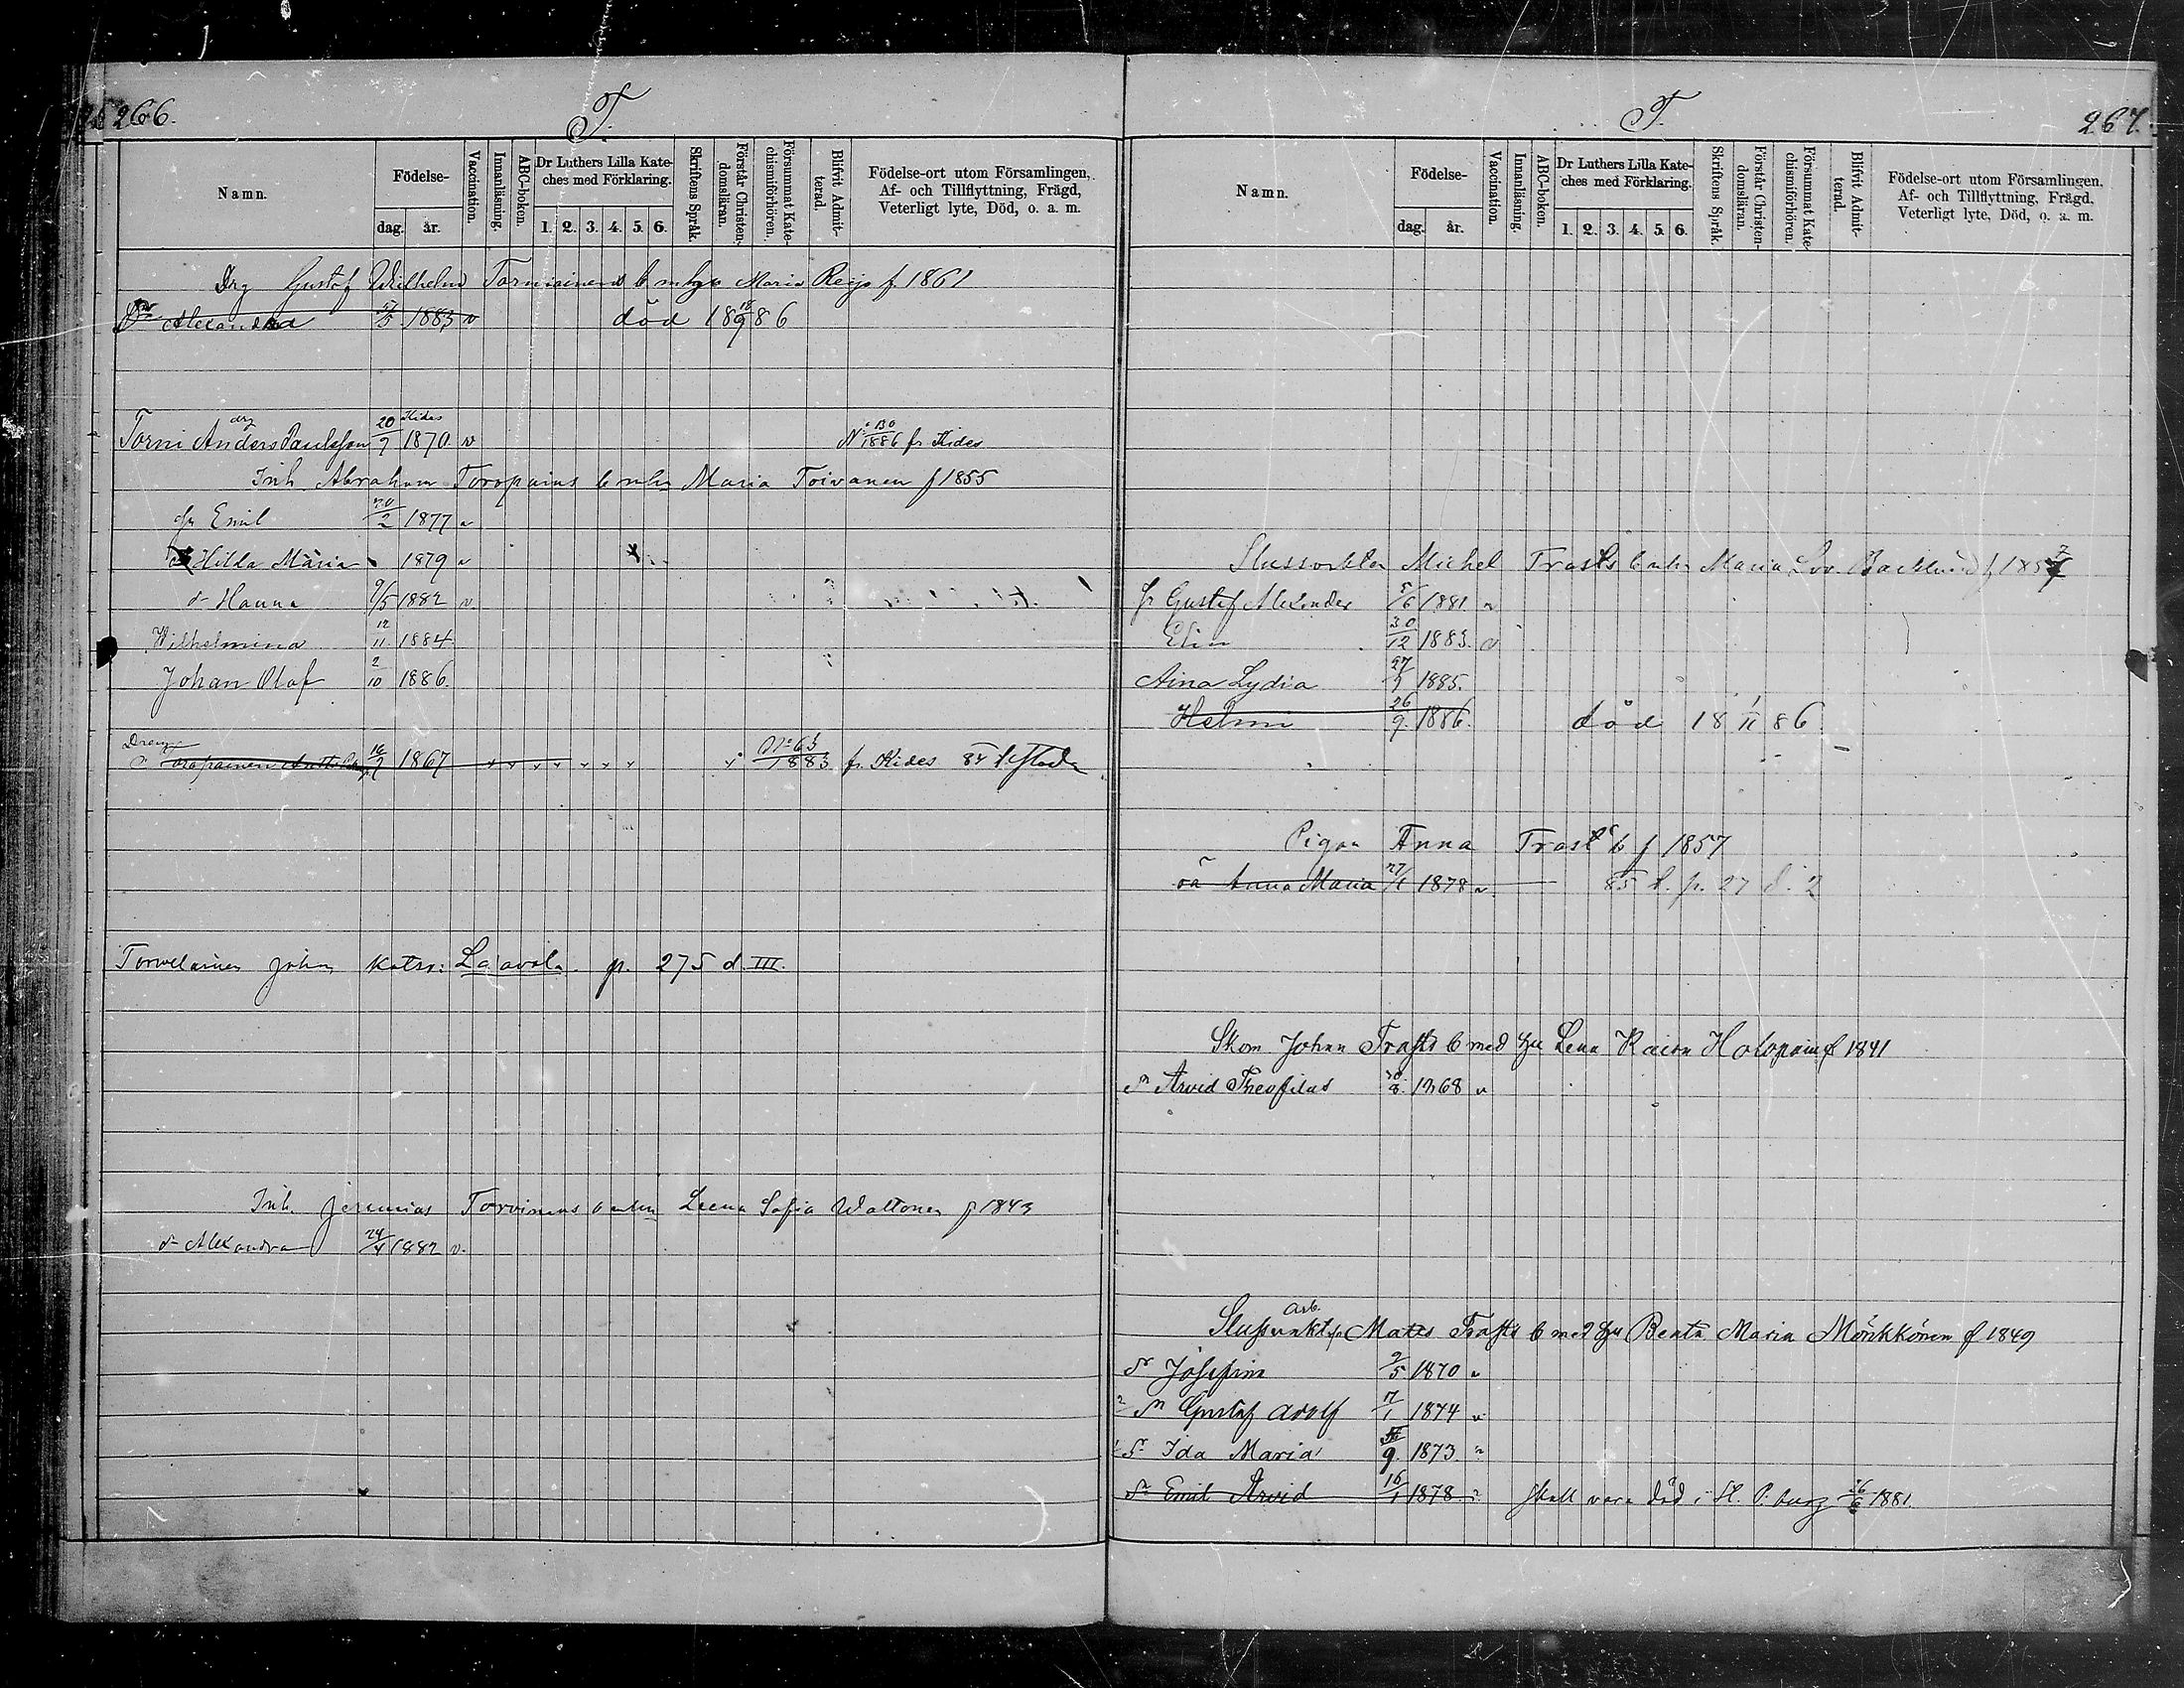 266.
T.
Namn.
Födelse-
dag. år.
Vaccination.
Innanläsning.
ABC-boken.
Dr Luthers Lilla Kateches med Förklaring.
1. 2. 3. 4. 5. 6.
Skriftens Språk.
Förstår Christendomsläran.
Försummat Katechismiförhören.
Blifvit Admitterad.
Födelse-ort utom Församlingen, Af- och Tillflyttning, Frägd, Veterligt lyte, Död, o. a. m.
Drg Gustaf Wilhelm b m hu Maria f 1861
Alexandra 27/5 1883 v död 18 18/9 86
drg Kides
Torni Anders Paulsson 20/9 1870 v No 130/1886 fr Kides
Inh. Abraham Toropains b m hu Maria Toivanen f 1855
Emil 20/2 1877 v
Hilda Maria 1879 v
dr Hanna 9/5 1882 v
Wilhelmina 12/11 1884
Johan Olof 2/10 1886.
Dreng
16/7 1867 No 63/1883 fr. Kides
Torvelainen Johan Katso: Laavola p. 275 d. III.
Inh. Jeremias Torvinens b m hu Leena Sofia Waltonen f 1843
dr Alexandra 24/4 1882 v.
T.
267.
Namn.
Födelse-
dag. år.
Vaccination.
Innanläsning.
ABC-boken.
Dr Luthers Lilla Kateches med Förklaring.
1. 2. 3. 4. 5. 6.
Skriftens Språk.
Förstår Christendomsläran.
Försummat Katechismiförhören.
Blifvit Admitterad.
Födelse-ort utom Församlingen, Af- och Tillflyttning, Frägd, Veterligt lyte, Död, o. a. m.
Michel Trasts b m hu Maria Lov. Backlund f 1857
Gustaf Alexander 5/6 1881 v
Elin 30/12 1883 v
Aina Lydia 27/7 1885.
Helmi 26/9 1886. död 18 1/11 86
Pigan Anna Trast b f 1857
oä Anna Maria 27/1 1878 v 85 d. p. 27 d. 2
Skom. Johan Trasts b med hu Lena Kaisa Holopain f 1841
Arvid Theofilus 1868 v
Arb.
Mats Trasts b med hu Beata Maria Mönkkönen f 1849
Josefina 9/5 1870 v
Gustaf Adolf 7/1 1874 v
Ida Maria 9. 1873.
Emil Arvid 16/1 1878 skall vara död i St. P.burg 26/6 1881.